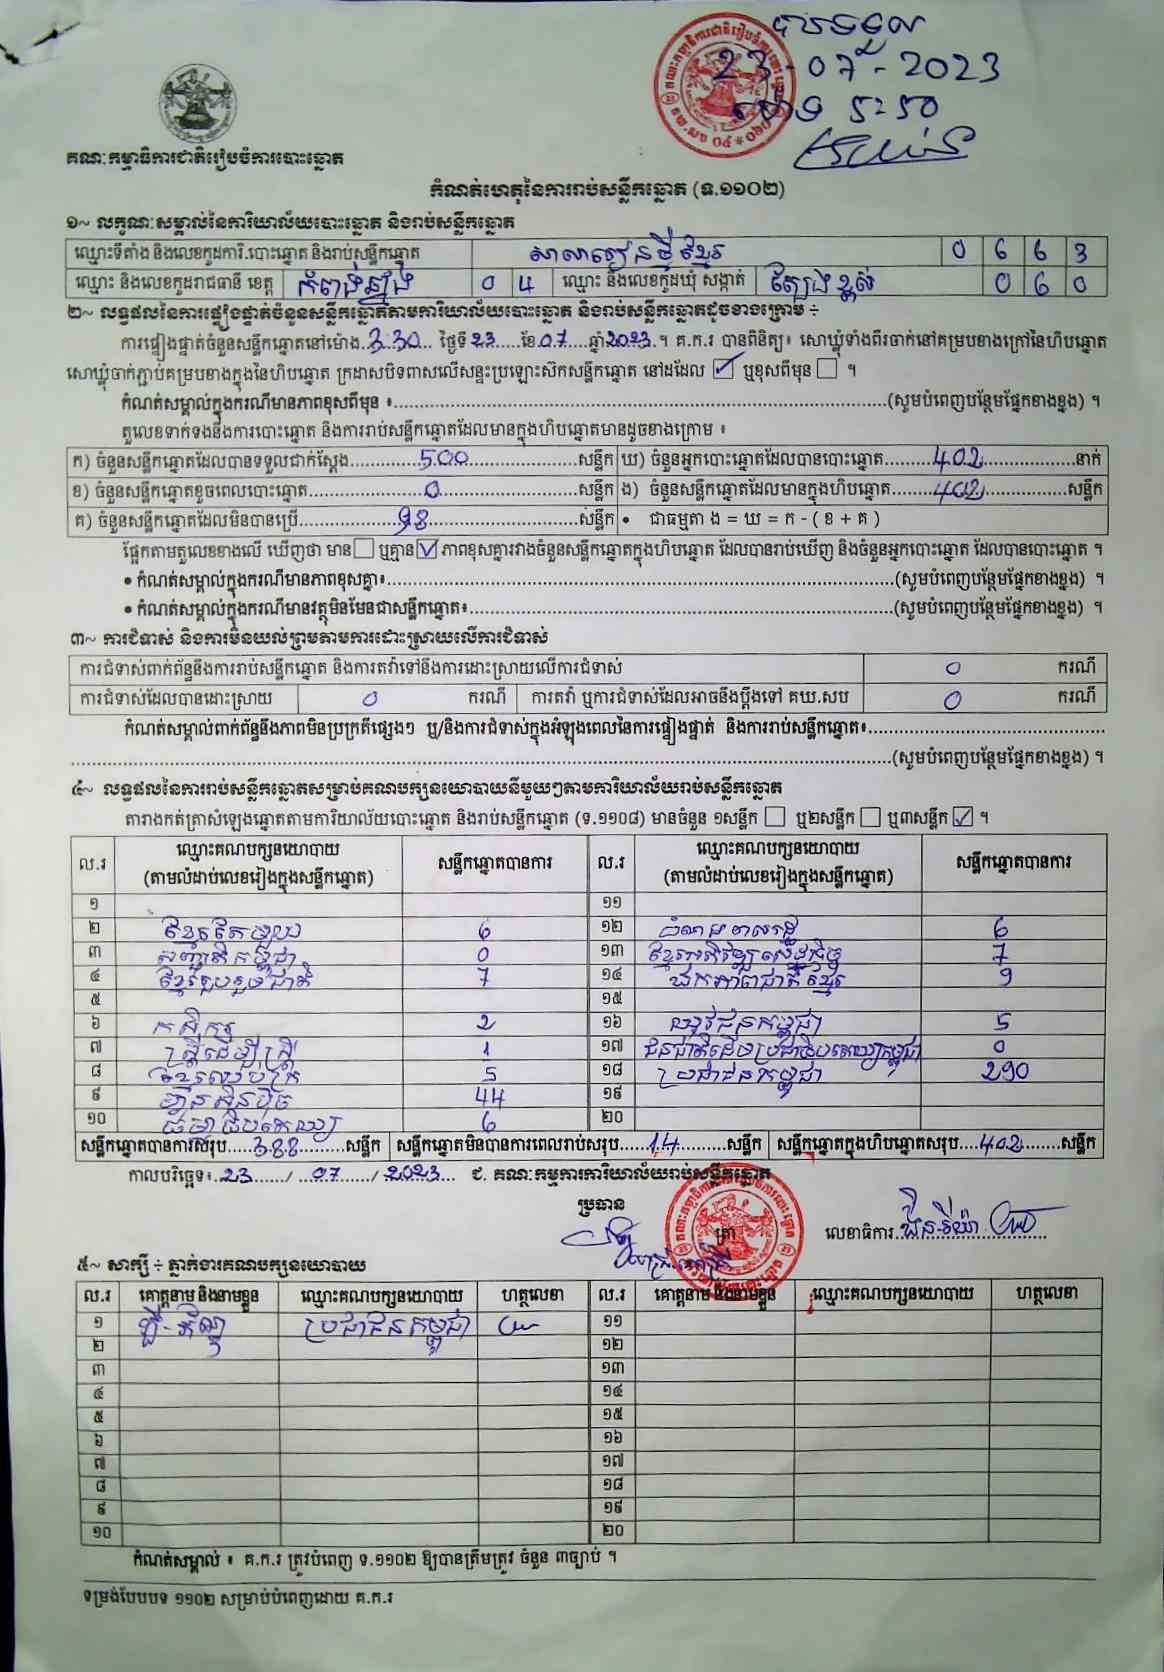 បានទទួល
23-07-2023
ម៉ោង 5:50
គណៈកម្មាធិការជាតិរៀបចំការបោះឆ្នោត
កំណត់ហេតុនៃការរាប់សន្លឹកឆ្នោត (ទ.១១០២)
១~ លក្ខណៈសម្គាល់នៃការិយាល័យបោះឆ្នោត និងរាប់សន្លឹកឆ្នោត
ឈ្មោះទីតាំង និងលេខកូដការិ.បោះឆ្នោត និងរាប់សន្លឹកឆ្នោត សាលារៀន 0 6 6 3
ឈ្មោះ និងលេខកូដរាជធានី ខេត្ត កំពង់ឆ្នាំង 0 4 ឈ្មោះ និងលេខកូដឃុំ សង្កាត់ ត្បែងខ្ពស់ 0 6 0
២~ លទ្ធផលនៃការផ្ទៀងផ្ទាត់ចំនួនសន្លឹកឆ្នោតតាមការិយាល័យបោះឆ្នោត និងរាប់សន្លឹកឆ្នោតដូចខាងក្រោម ÷
ការផ្ទៀងផ្ទាត់ចំនួនសន្លឹកឆ្នោតនៅម៉ោង..3:30... ថ្ងៃទី 23.....ខែ.07......ឆ្នាំ2023.។ គ.ក.រ បានពិនិត្យ៖ សោឃ្លុំទាំងពីរចាក់នៅគម្របខាងក្រៅនៃហិបឆ្នោត
សោឃ្លុំចាក់ភ្ជាប់គម្របខាងក្នុងនៃហិបឆ្នោត ក្រដាសបិទពាសលើសន្ទះប្រឡោះស៊កសន្លឹកឆ្នោត នៅដដែល ☑ ឬខុសពីមុន ☐ ។
កំណត់សម្គាល់ក្នុងករណីមានភាពខុសពីមុន ៖..........(សូមបំពេញបន្ថែមផ្នែកខាងខ្នង) ។
តួលេខទាក់ទងនឹងការបោះឆ្នោត និងការរាប់សន្លឹកឆ្នោតដែលមានក្នុងហិបឆ្នោតមានដូចខាងក្រោម ៖
ក) ចំនួនសន្លឹកឆ្នោតដែលបានទទួលជាក់ស្តែង..........500..........សន្លឹក ឃ) ចំនួនអ្នកបោះឆ្នោតដែលបានបោះឆ្នោត.......402..........នាក់
ខ) ចំនួនសន្លឹកឆ្នោតខូចពេលបោះឆ្នោត..........0..........សន្លឹក ង) ចំនួនសន្លឹកឆ្នោតដែលមានក្នុងហិបឆ្នោត.......402..........សន្លឹក
គ) ចំនួនសន្លឹកឆ្នោតដែលមិនបានប្រើ..........98..........សន្លឹក • ជាធម្មតា ង = ឃ = ក - ( ខ + គ )
ផ្អែកតាមតួលេខខាងលើ ឃើញថា មាន ☐ ឬគ្មាន ☑ ភាពខុសគ្នារវាងចំនួនសន្លឹកឆ្នោតក្នុងហិបឆ្នោត ដែលបានរាប់ឃើញ និងចំនួនអ្នកបោះឆ្នោត ដែលបានបោះឆ្នោត ។
• កំណត់សម្គាល់ក្នុងករណីមានភាពខុសគ្នា៖..........(សូមបំពេញបន្ថែមផ្នែកខាងខ្នង) ។
• កំណត់សម្គាល់ក្នុងករណីមានវត្ថុមិនមែនជាសន្លឹកឆ្នោត៖..........(សូមបំពេញបន្ថែមផ្នែកខាងខ្នង) ។
៣~ ការជំទាស់ និងការមិនយល់ព្រមតាមការដោះស្រាយលើការជំទាស់
ការជំទាស់ពាក់ព័ន្ធនឹងការរាប់សន្លឹកឆ្នោត និងការតវ៉ាទៅនឹងការដោះស្រាយលើការជំទាស់ 0 ករណី
ការជំទាស់ដែលបានដោះស្រាយ 0 ករណី ការតវ៉ា ឬការជំទាស់ដែលអាចនឹងប្តឹងទៅ គឃ.សប 0 ករណី
កំណត់សម្គាល់ពាក់ព័ន្ធនឹងភាពមិនប្រក្រតីផ្សេងៗ ឬ/និងការជំទាស់ក្នុងអំឡុងពេលនៃការផ្ទៀងផ្ទាត់ និងការរាប់សន្លឹកឆ្នោត៖..........
..........(សូមបំពេញបន្ថែមផ្នែកខាងខ្នង) ។
៤~ លទ្ធផលនៃការរាប់សន្លឹកឆ្នោតសម្រាប់គណបក្សនយោបាយនីមួយៗតាមការិយាល័យរាប់សន្លឹកឆ្នោត
តារាងកត់ត្រាសំឡេងឆ្នោតតាមការិយាល័យបោះឆ្នោត និងរាប់សន្លឹកឆ្នោត (ទ.១១០៨) មានចំនួន ១សន្លឹក ☐ ឬ២សន្លឹក ☐ ឬ៣សន្លឹក ☑ ។
ល.រ ឈ្មោះគណបក្សនយោបាយ (តាមលំដាប់លេខរៀងក្នុងសន្លឹកឆ្នោត) សន្លឹកឆ្នោតបានការ ល.រ ឈ្មោះគណបក្សនយោបាយ (តាមលំដាប់លេខរៀងក្នុងសន្លឹកឆ្នោត) សន្លឹកឆ្នោតបានការ
១ ១១
២ ខ្មែរតែមួយ 6 ១២ 6
៣ សញ្ជាតិកម្ពុជា 0 ១៣ ខ្មែរអភិវឌ្ឍសេដ្ឋកិច្ច 7
៤ ខ្មែររួបរួមជាតិ 7 ១៤ ឯកភាពជាតិខ្មែរ 9
៥ ១៥
៦ កសិករ 2 ១៦ យុវជនកម្ពុជា 5
៧ ស្ត្រីដើម្បីស្ត្រី 1 ១៧ ជនជាតិដើមប្រជាធិបតេយ្យកម្ពុជា 0
៨ ខ្មែរឈប់ក្រ 5 ១៨ ប្រជាជនកម្ពុជា 290
៩ ហ៊្វុនស៊ិនប៉ិច 44 ១៩
១០ ធម្មាធិបតេយ្យ 6 ២០
សន្លឹកឆ្នោតបានការសរុប.....388.........សន្លឹក សន្លឹកឆ្នោតមិនបានការពេលរាប់សរុប.....14........សន្លឹក សន្លឹកឆ្នោតក្នុងហិបឆ្នោតសរុប....402.......សន្លឹក
កាលបរិច្ឆេទ៖..23......./...07......../..2023.... ជ. គណៈកម្មការការិយាល័យរាប់សន្លឹកឆ្នោត
ប្រធាន ត្រា លេខាធិការ
៥~ សាក្សី ÷ ភ្នាក់ងារគណបក្សនយោបាយ
ល.រ គោត្តនាម និងនាមខ្លួន ឈ្មោះគណបក្សនយោបាយ ហត្ថលេខា ល.រ គោត្តនាម និងនាមខ្លួន ឈ្មោះគណបក្សនយោបាយ ហត្ថលេខា
១ ប្រជាជនកម្ពុជា ១១
២ ១២
៣ ១៣
៤ ១៤
៥ ១៥
៦ ១៦
៧ ១៧
៨ ១៨
៩ ១៩
១០ ២០
កំណត់សម្គាល់ ៖ គ.ក.រ ត្រូវបំពេញ ទ.១១០២ ឱ្យបានត្រឹមត្រូវ ចំនួន ៣ច្បាប់ ។
ទម្រង់បែបបទ ១១០២ សម្រាប់បំពេញដោយ គ.ក.រ